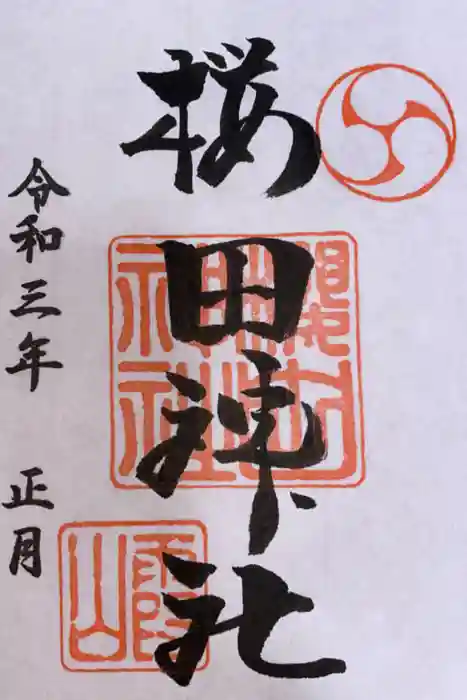 桜田神社
霞山
令和三年 正月